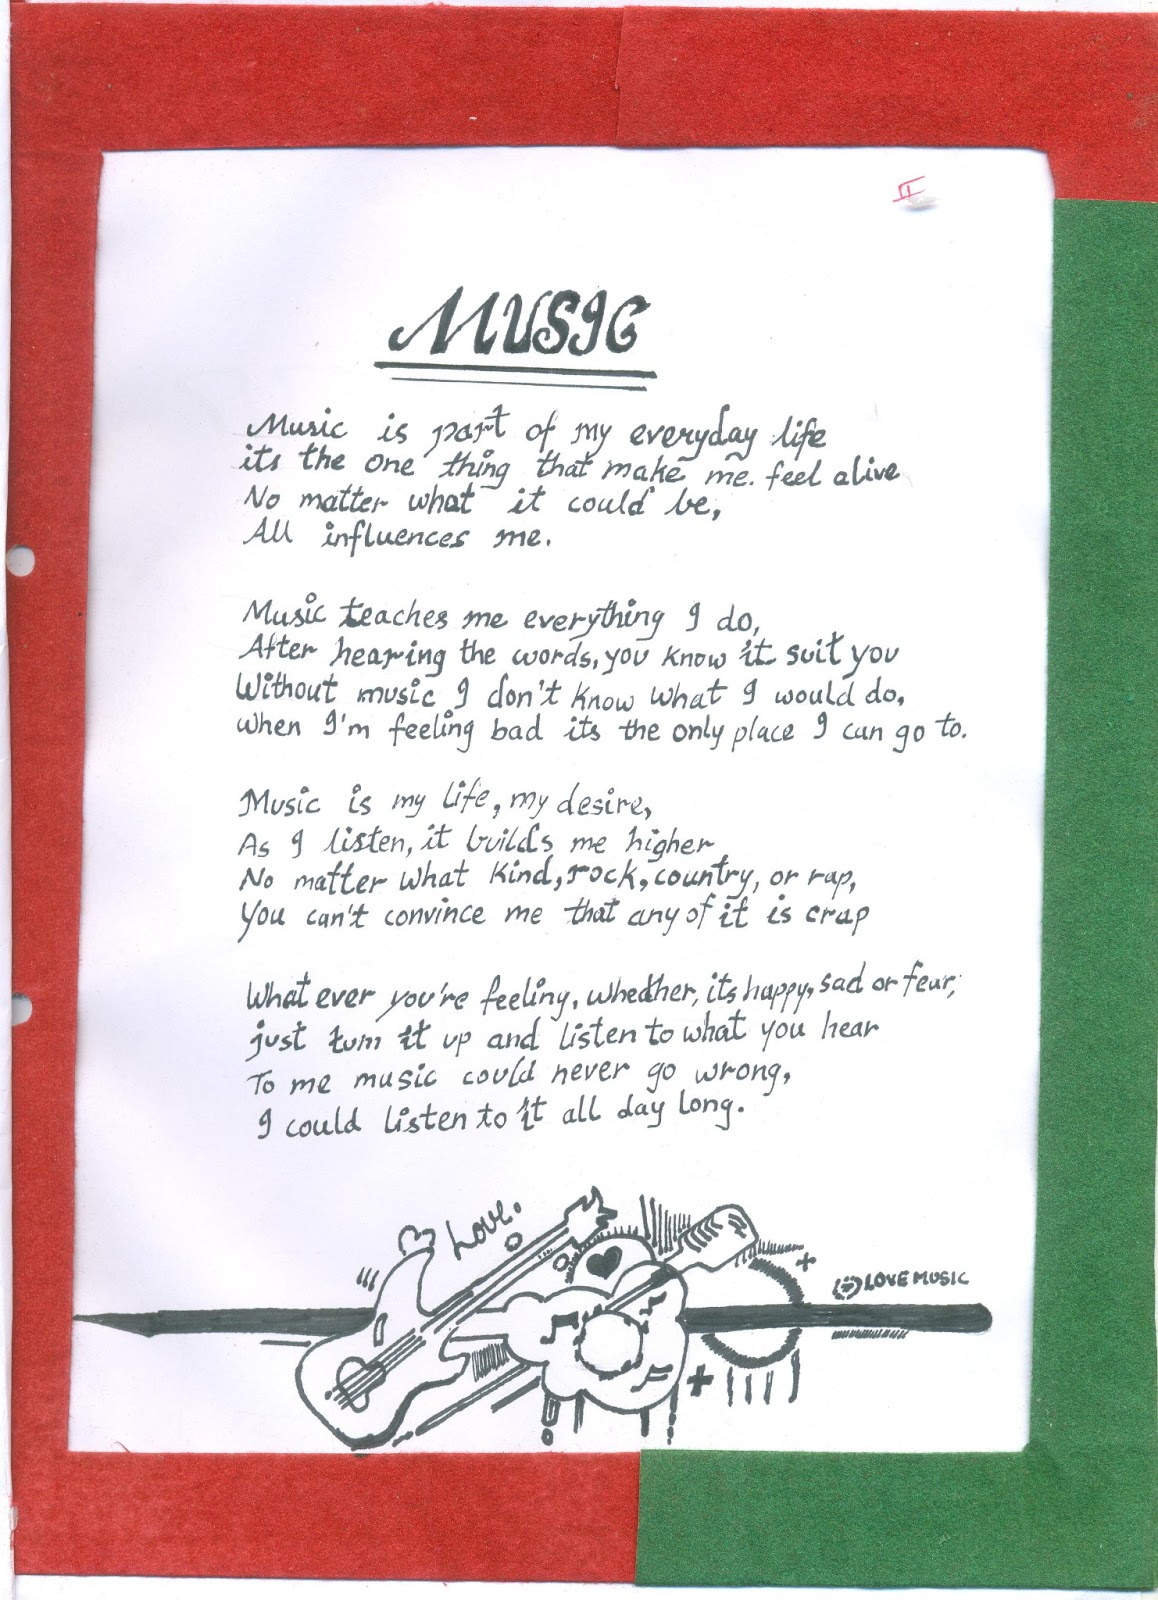 II
MUSIC
Music is part of my everyday life
its the one thing that make me. feel alive
No matter what it could be,
All influences me.
Music teaches me everything I do,
After hearing the words, you know it suit you
Without music I don't know what I would do,
when I'm feeling bad its the only place I can go to.
Music is my life, my desire,
As I listen, it builds me higher
No matter what kind, rock, country, or rap,
You can't convince me that any of it is crap
What ever you're feeling, whether, its happy, sad or fear,
just turn it up and listen to what you hear
To me music could never go wrong,
I could listen to it all day long.
Love.
LOVE MUSIC